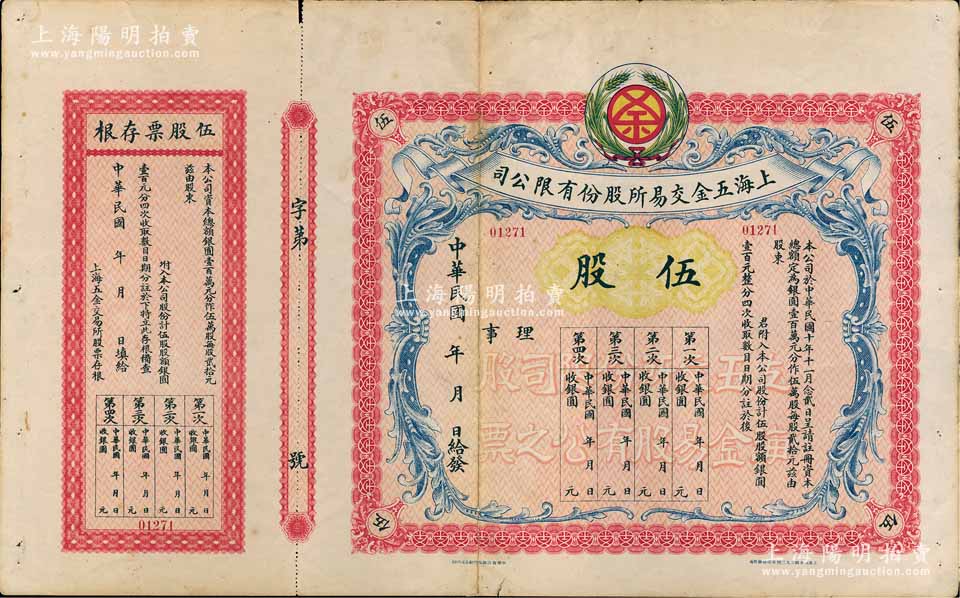 上海陽明拍賣
www.yangmingauction.com
上海五金交易所股份有限公司
01271
01271
伍股
本公司於中華民國十年十一月念貳日呈請註冊資本
總額定為銀圓壹百萬元分作伍萬股每股貳拾元茲由
股東
君附入本公司股份計伍股股額銀圓
壹百元整分四次收取數目日期分註於後
第一次 中華民國 年 月 日
收銀圓 元
第二次 中華民國 年 月 日
收銀圓 元
第三次 中華民國 年 月 日
收銀圓 元
第四次 中華民國 年 月 日
收銀圓 元
理事
中華民國 年 月 日給發
伍
伍
伍
伍
字第 號
伍股票存根
本公司資本總額銀圓壹百萬元分作伍萬股每股貳拾元
茲由股東
附入本公司股份計伍股股額銀圓
壹百元分四次收取數目日期分註於下特立此存根備查
中華民國 年 月 日填給
上海五金交易所股票存根
第一次 中華民國 年 月 日
收銀圓 元
第二次 中華民國 年 月 日
收銀圓 元
第三次 中華民國 年 月 日
收銀圓 元
第四次 中華民國 年 月 日
收銀圓 元
01271
上海陽明拍賣
www.yangmingauction.com
上海陽明拍賣
www.yangmingauction.com